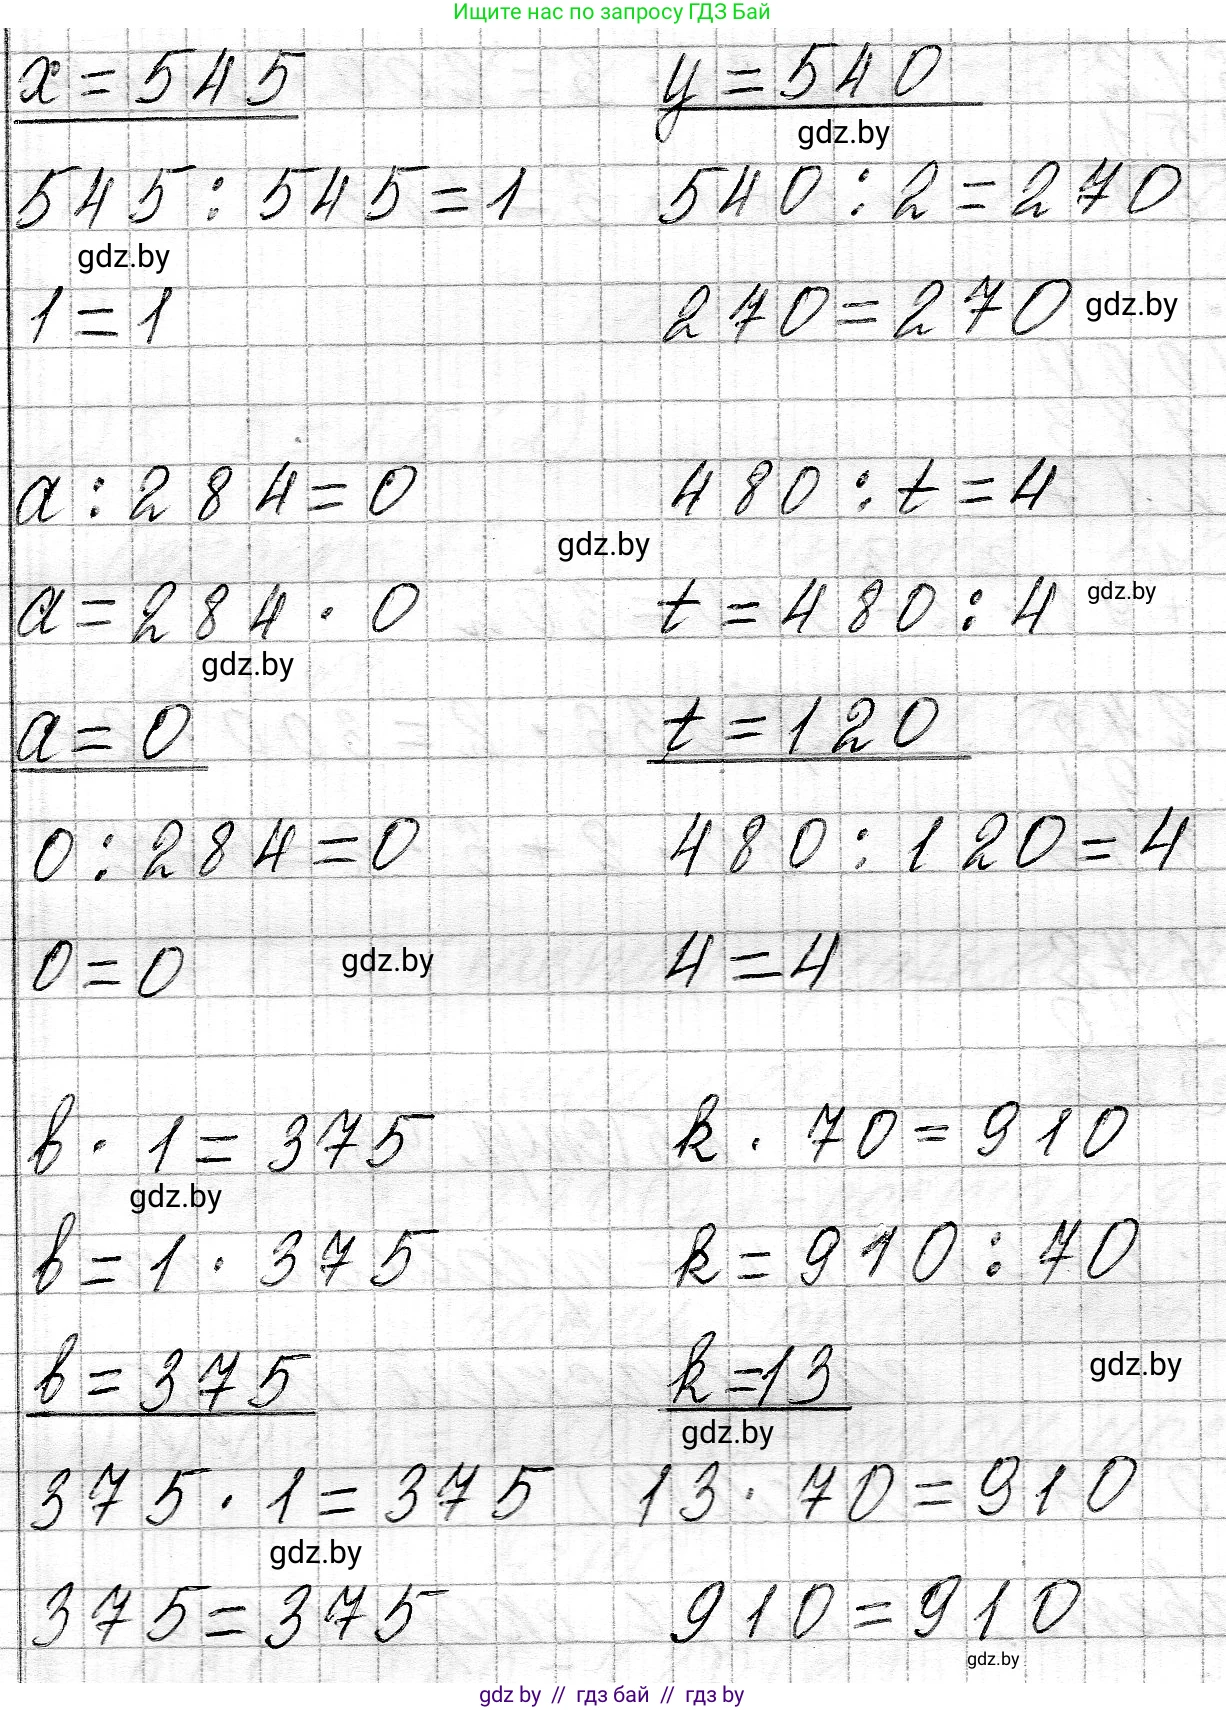 Ищите нас по запросу ГДЗ Бай
x = 545
y = 540
gdz.by
545 : 545 = 1
540 : 2 = 270
gdz.by
1 = 1
270 = 270
gdz.by
a : 284 = 0
480 : t = 4
gdz.by
a = 284 · 0
t = 480 : 4
gdz.by
gdz.by
a = 0
t = 120
0 : 284 = 0
480 : 120 = 4
0 = 0
gdz.by
4 = 4
b · 1 = 375
k · 70 = 910
gdz.by
b = 1 · 375
k = 910 : 70
b = 375
k = 13
gdz.by
gdz.by
375 · 1 = 375
13 · 70 = 910
gdz.by
375 = 375
910 = 910
gdz.by
gdz by // гдз бай // гдз by